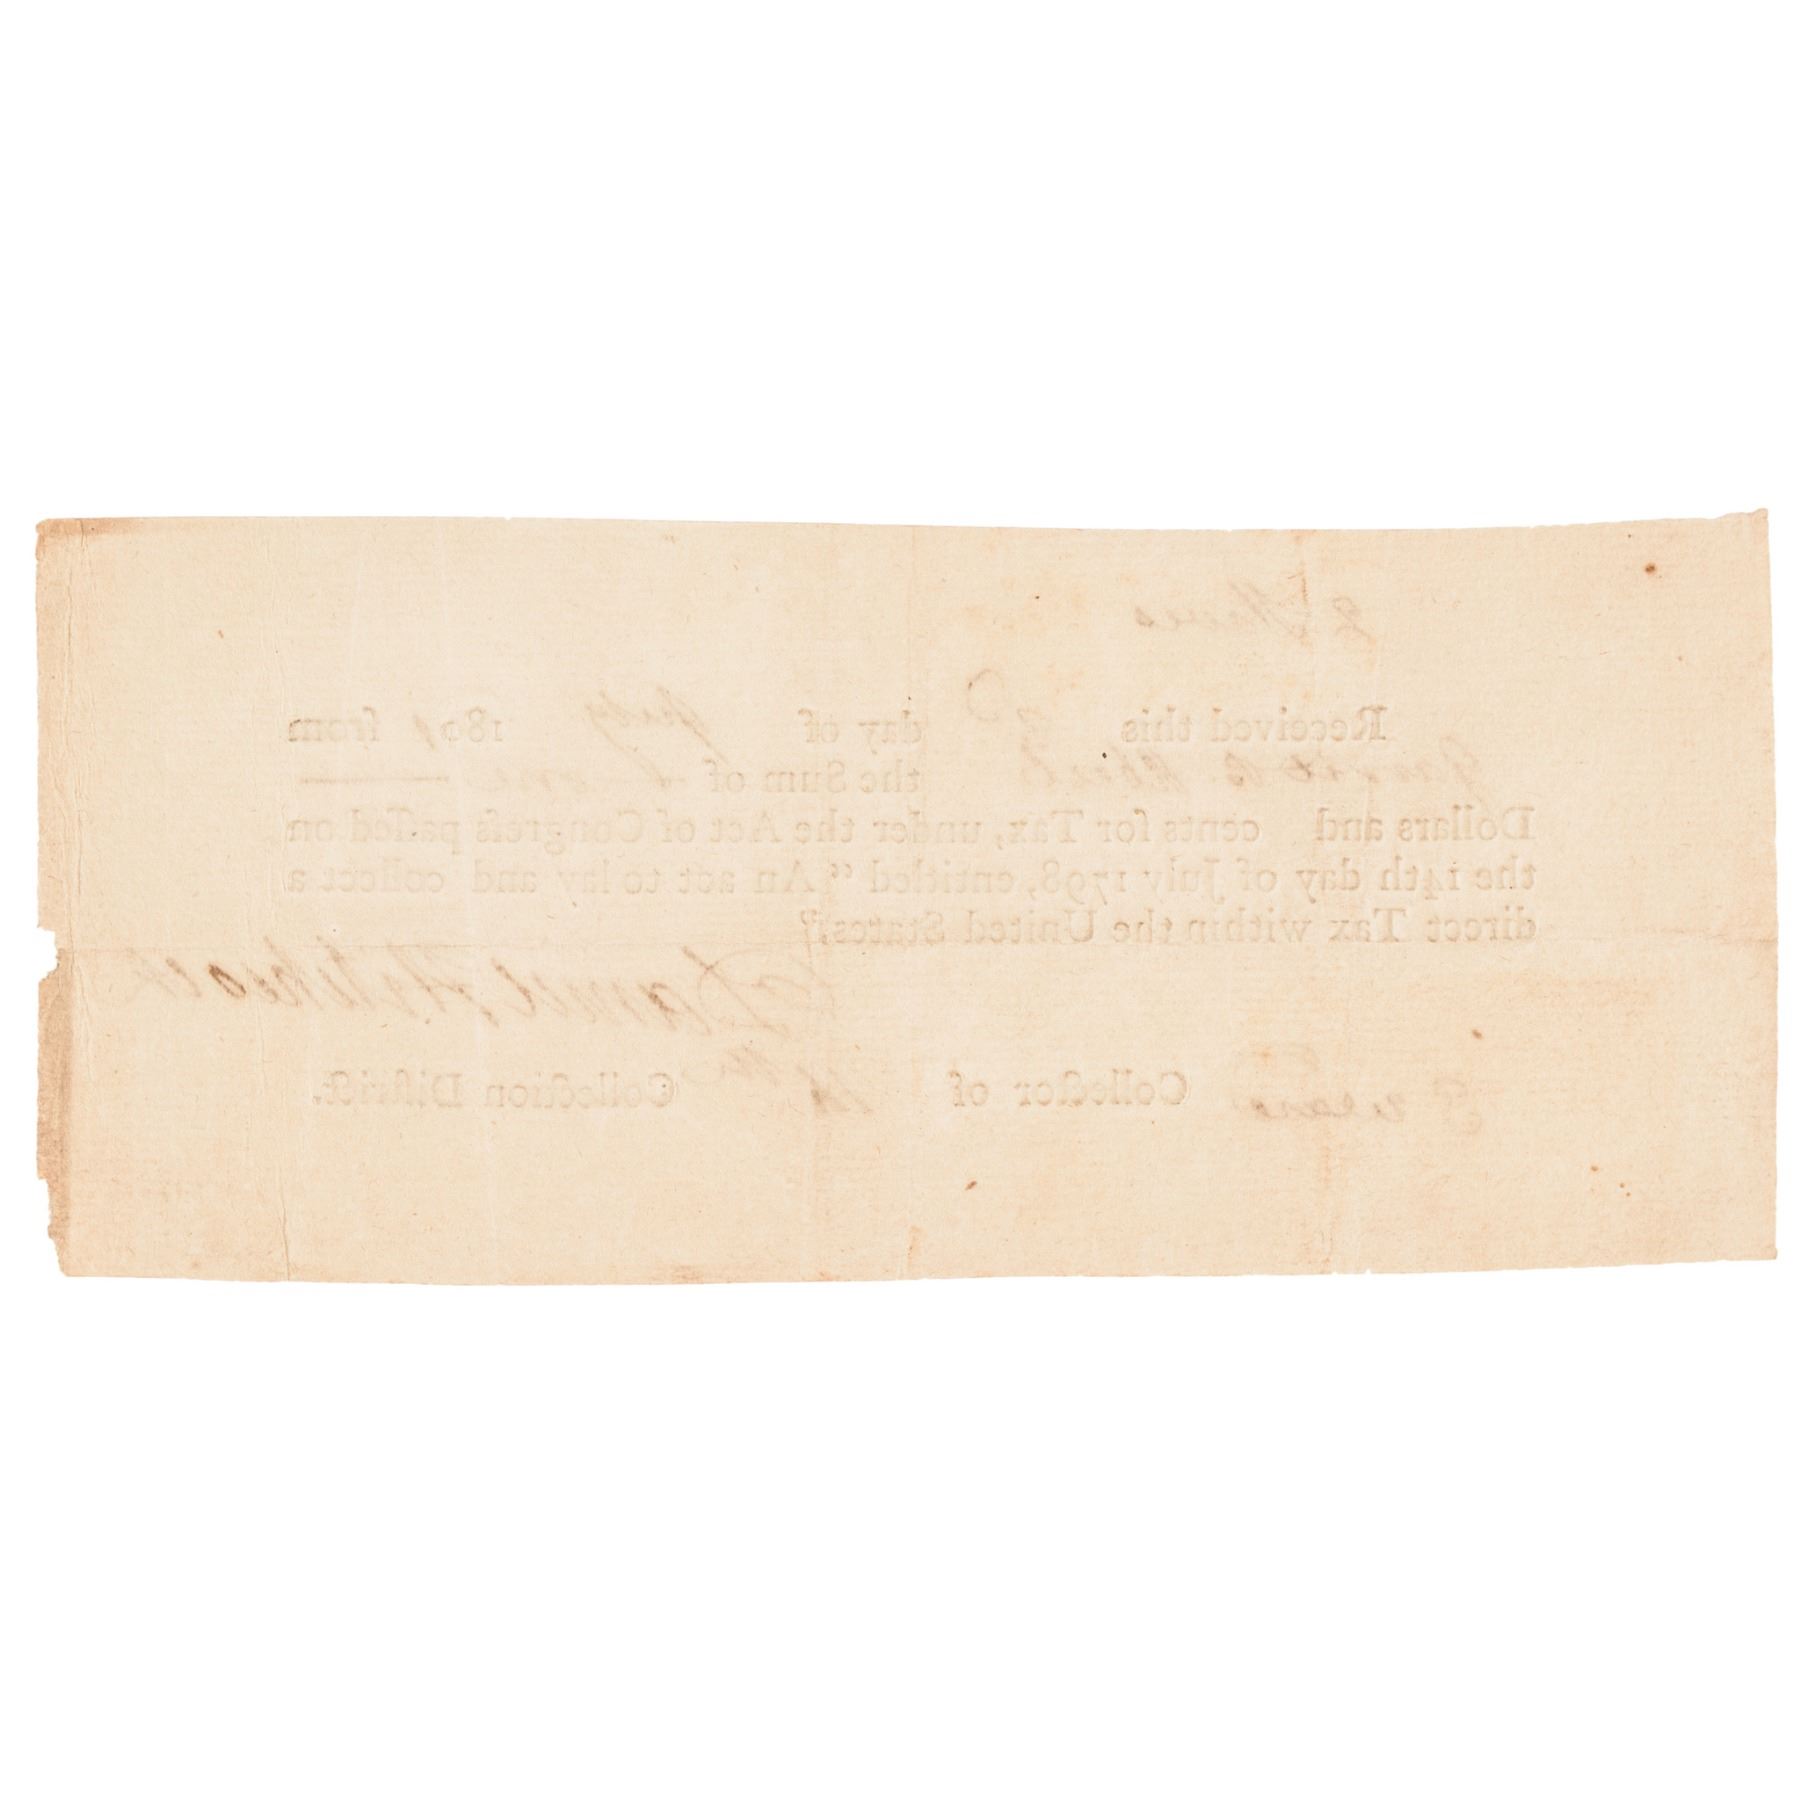 2 Slaves
Received this day of July 1801 from
the Sum of one
Dollars and cents for Tax, under the Act of Congreſs paſſed on
the 14th day of July 1798, entitled “An act to lay and collect a
direct Tax within the United States.”
Daniel
Collector of Collection Diſtrict.